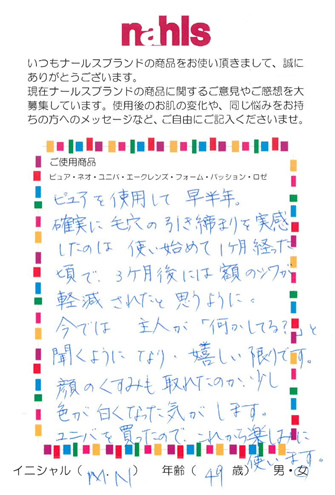 nahls
いつもナールスブランドの商品をお使い頂きまして、誠に
ありがとうございます。
現在ナールスブランドの商品に関するご意見やご感想を大
募集しています。使用後のお肌の変化や、同じ悩みをお持
ちの方へのメッセージなど、ご自由にご記入くださいませ。
ご使用商品
ピュア・ネオ・ユニバ・エークレンズ・フォーム・パッション・ロゼ
ピュアを使用して早半年。
確実に毛穴の引き締まりを実感
したのは 使い始めて1ヶ月経った
頃で、3ヶ月後には額のシワが
軽減されたと思うように。
今では 主人が「何かしてる?」と
聞くようになり、嬉しい限りです。
顔のくすみも取れたのか、少し
色が白くなった気がします。
ユニバを買ったので、これから楽しみに
使います。
イニシャル( M・N ) 年齢( 49 歳) 男・女